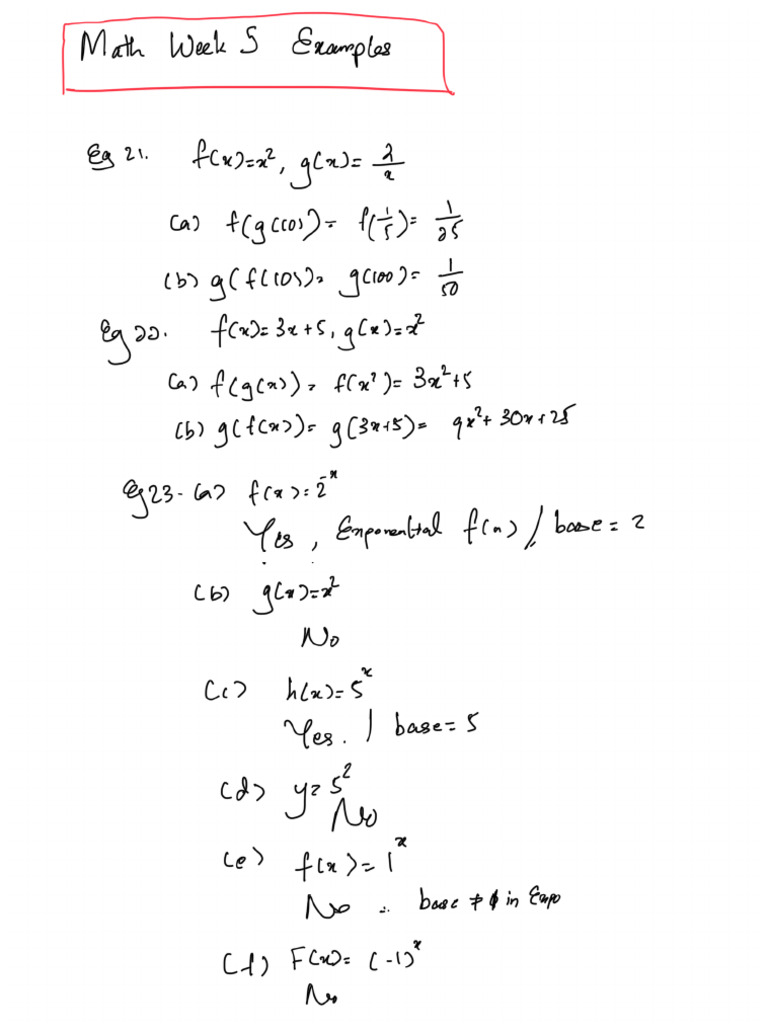 Math Week 5 Examples
Eg 21. f(x)=x², g(x)= 2/x
(a) f(g(10)) = f(1/5) = 1/25
(b) g(f(10)) = g(100) = 1/50
Eg 22. f(x)= 3x+5, g(x)=x²
(a) f(g(x)) = f(x²) = 3x²+5
(b) g(f(x)) = g(3x+5) = 9x²+ 30x+25
Eg 23- (a) f(x)= 2⁻ˣ
Yes, Exponential f(n) / base = 2
(b) g(x)=x²
No
(c) h(x)= 5ˣ
Yes. | base = 5
(d) y= 5²
No
(e) f(x) = 1ˣ
No ∴ base ≠ 1 in Expo
(f) F(x)= (-1)ˣ
No